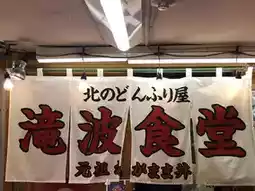 北のどんぶり屋
滝波食堂
元祖わがまま丼